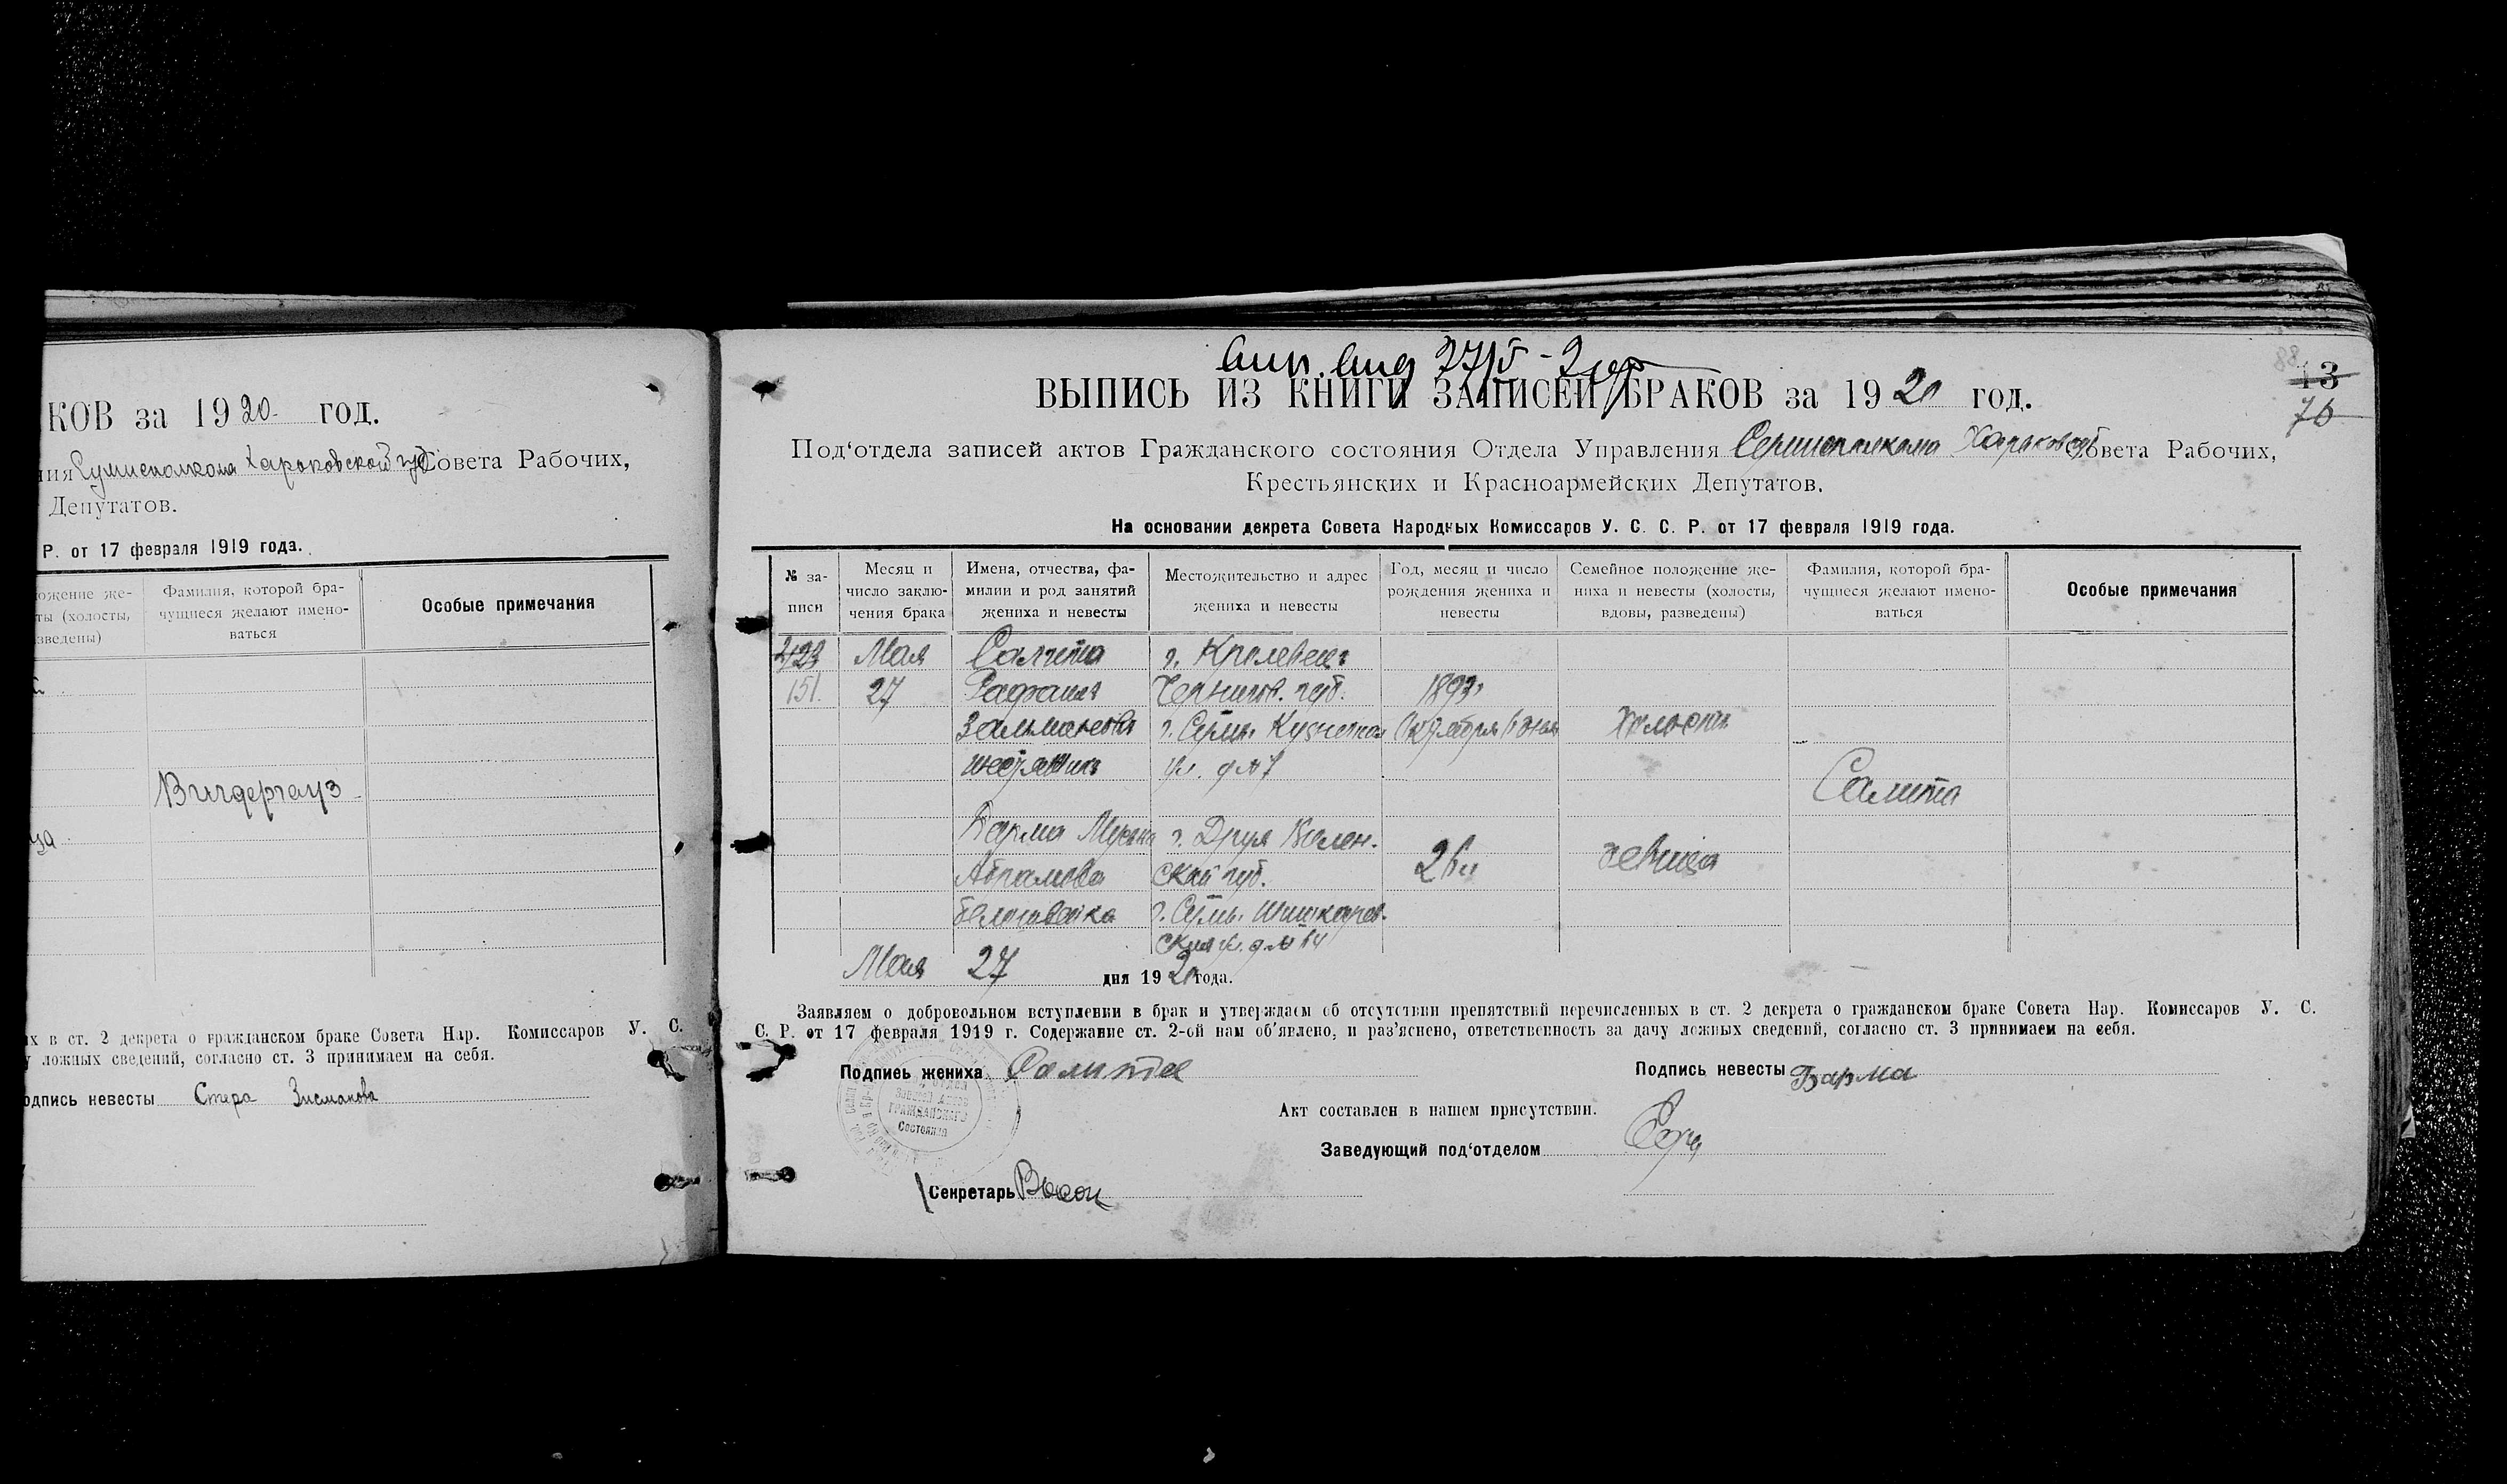 КОВ за 1920 год.
Сумисполкома Харьковской губ Совета Рабочих,
Депутатов.
Р. от 17 февраля 1919 года.
Фамилия, которой бра-
чущиеся желают имено-
ваться
Особые примечания
ожение же-
ты (холосты,
зведены)
Виндергауз
х в ст. 2 декрета о гражданском браке Совета Нар. Комиссаров У. С.
у ложных сведений, согласно ст. 3 принимаем на себя.
одпись невесты Стера Зисманова
27/5 -
88
13
76
ВЫПИСЬ ИЗ КНИГИ ЗАПИСЕЙ БРАКОВ за 1920 год.
Под‘отдела записей актов Гражданского состояния Отдела Управления Сумисполкома Харьков губ Совета Рабочих,
Крестьянских и Красноармейских Депутатов.
На основании декрета Совета Народных Комиссаров У. С. С. Р. от 17 февраля 1919 года.
№ за-
писи
Месяц и
число заклю-
чения брака
Имена, отчества, фа-
милии и род занятий
жениха и невесты
Местожительство и адрес
жениха и невесты
Год, месяц и число
рождения жениха и
невесты
Семейное положение же-
ниха и невесты (холосты,
вдовы, разведены)
Фамилия, которой бра-
чущиеся желают имено-
ваться
Особые примечания
423 Мая Салита г. Кролевец
151 27 Рафаил Чернигов. губ. 1893
Зальманович г. Сумы. Кузнечная Октября холост
ул. д № 7
Салита
Абрамова г. Друя Вилен.
ской губ. 26 л девица
г. Сумы. Шишкарев-
ская ул. д №
Мая 27 дня 1920 года.
Заявляем о добровольном вступлении в брак и утверждаем об отсутствии препятствий перечисленных в ст. 2 декрета о гражданском браке Совета Нар. Комиссаров У. С.
С. Р. от 17 февраля 1919 г. Содержание ст. 2-ой нам об‘явлено, и раз‘яснено, ответственность за дачу ложных сведений, согласно ст. 3 принимаем на себя.
Подпись жениха Салита
Подпись невесты Барма
Отдел
Записей Актов
ГРАЖДАНСКОГО
Состояния
Акт составлен в нашем присутствии.
Заведующий под‘отделом
Секретарь